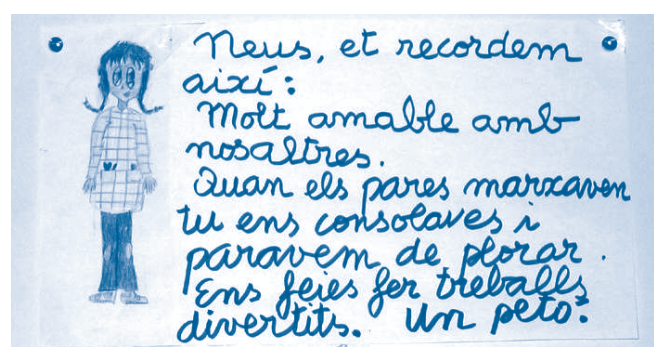 Neus, et recordem
així:
Molt amable amb
nosaltres.
Quan els pares marxaven
tu ens consolaves i
paravem de plorar.
Ens feies fer treballs
divertits. Un petó.